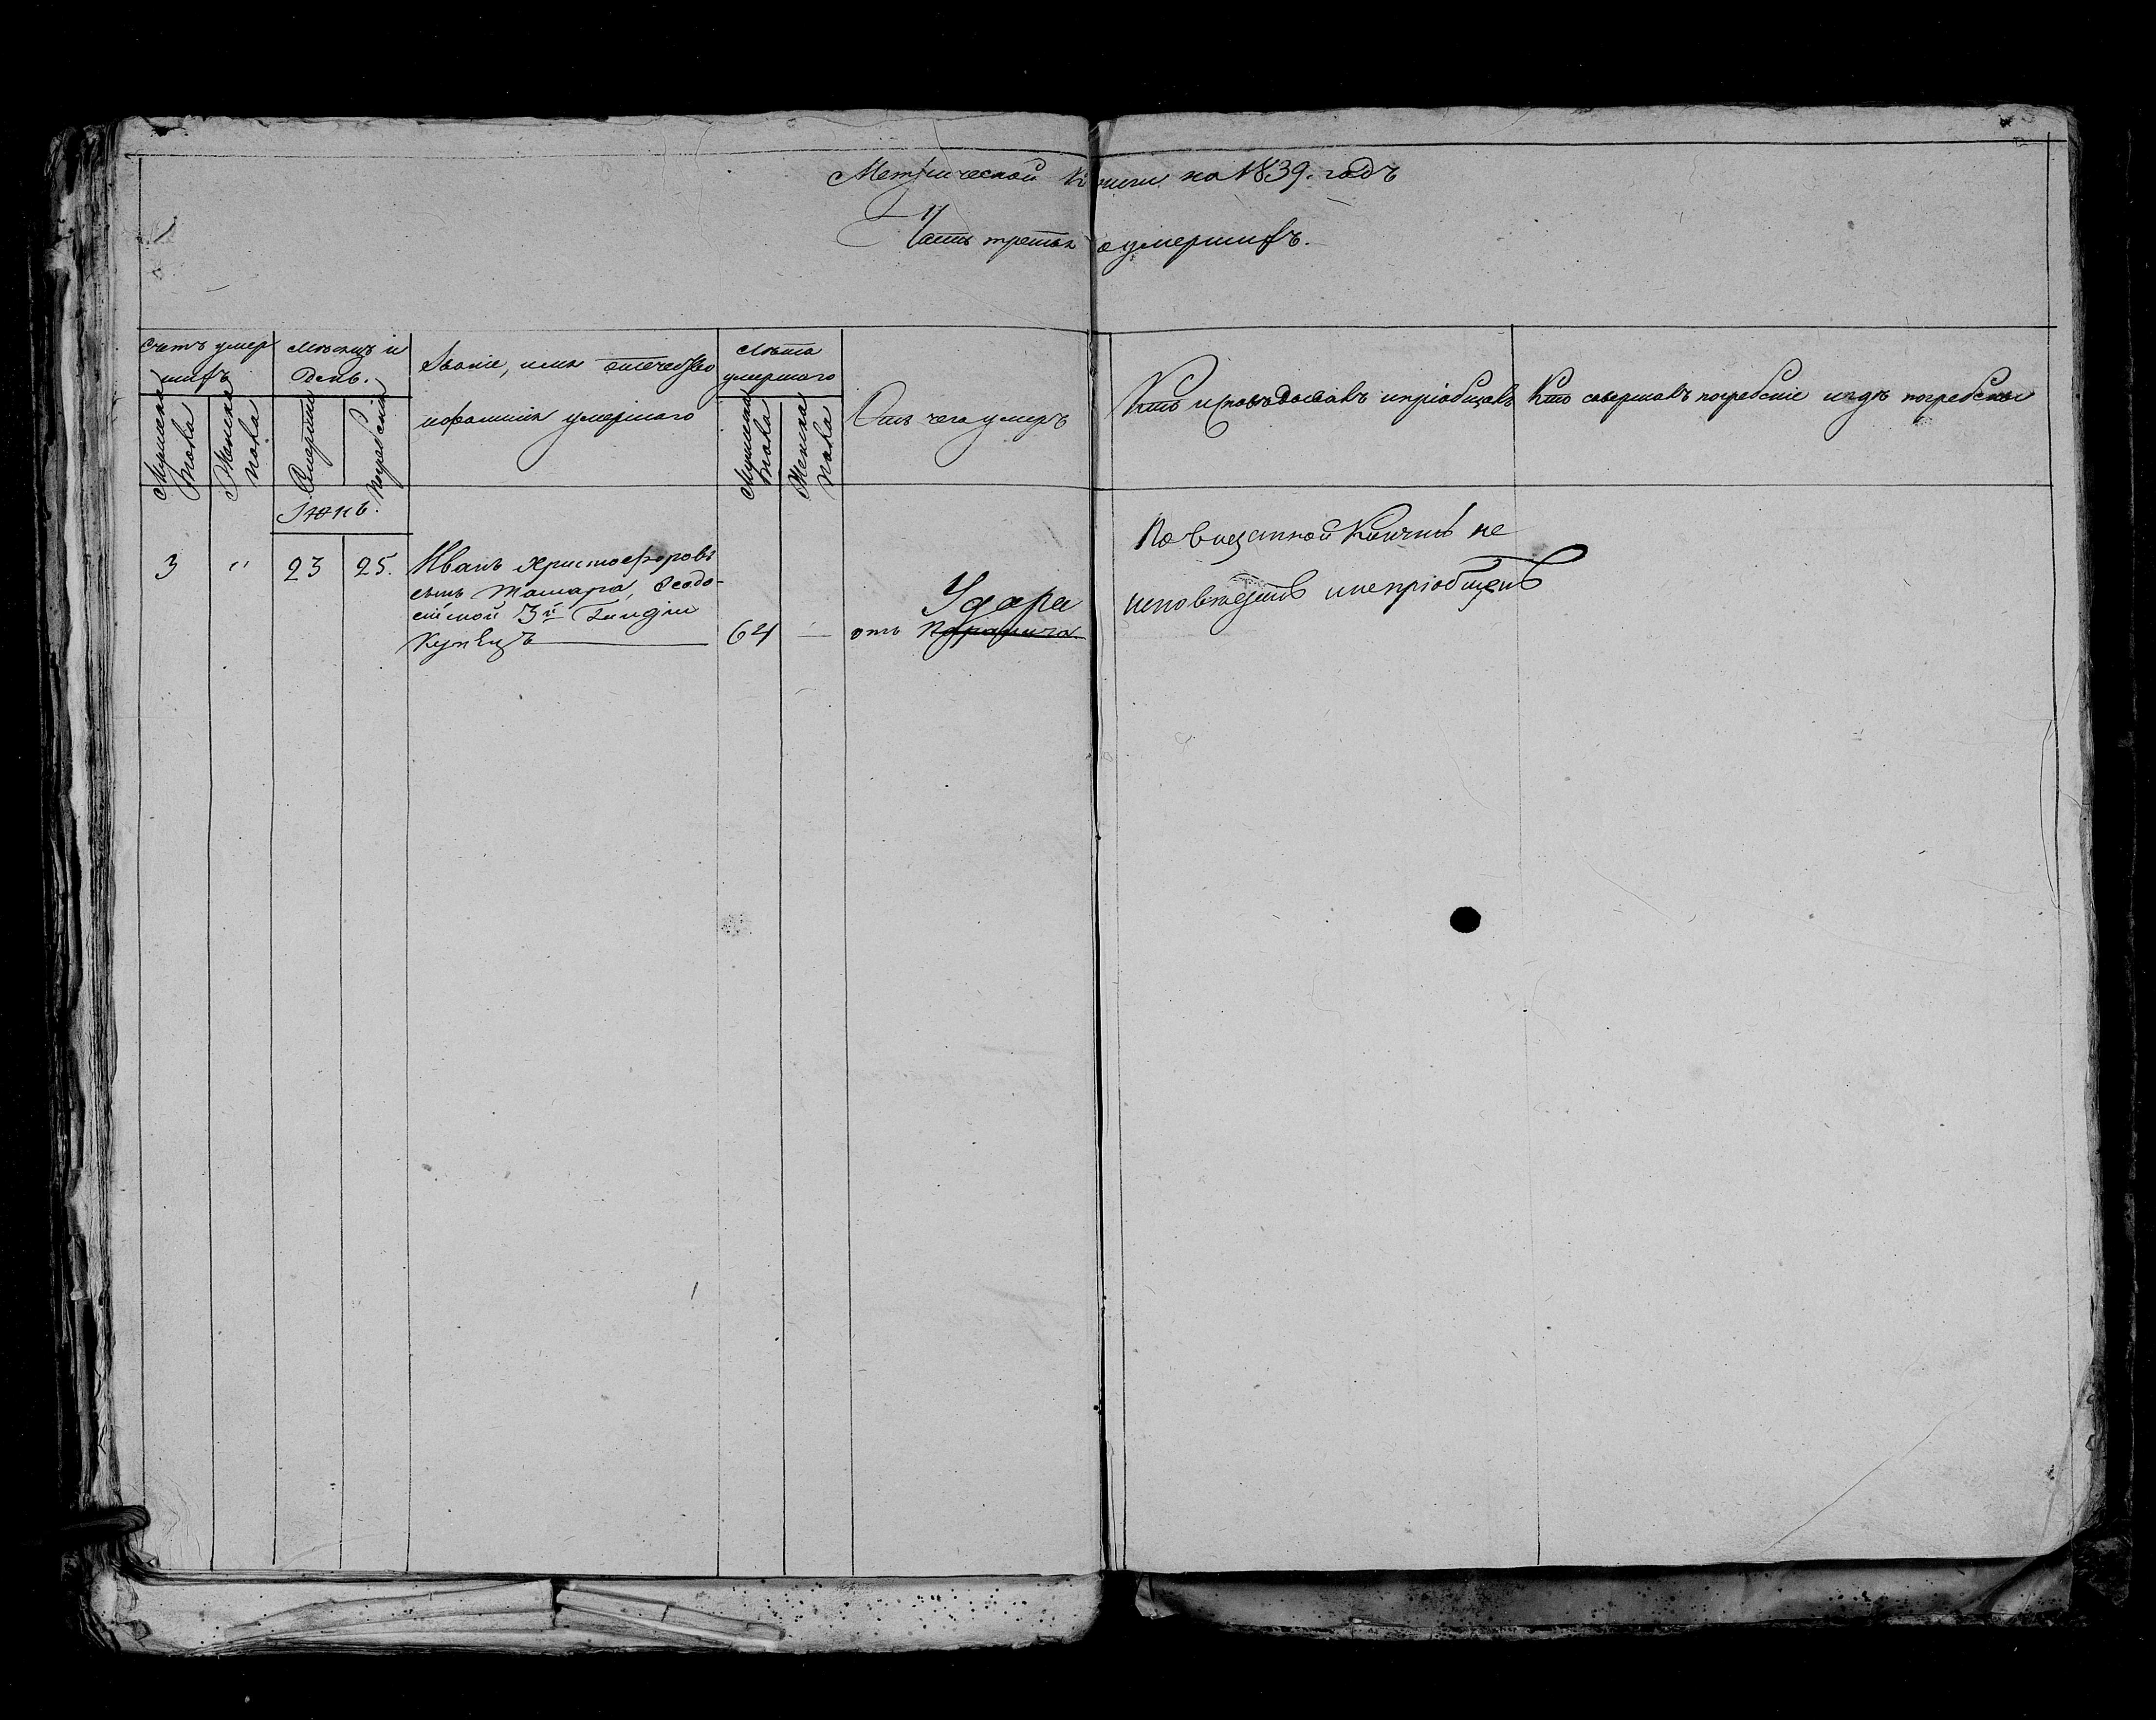 Метрической Книги на 1839. годъ
Часть третья о умершихъ.
Счетъ умер
шихъ
Мужеска
пола
Женска
пола
Мѣсяцъ и
День.
Смерти
Погребенія
Званіе, имя отечество
и фамилія умершаго
Лѣта
умершаго
Мужеска
пола
Женска
пола
Отъ чего умеръ
Кто исповѣдовалъ и пріобщалъ
Кто совершалъ погребеніе и гдѣ погребены
Іюнь.
3 " 23 25.
Иванъ Христофоровъ
сынъ Тамара, Ѳеодо-
сійской 3й Гильдіи
Купецъ
64 —
Удара
отъ
По внезапной Кончинѣ не
исповѣданъ и не пріобщенъ